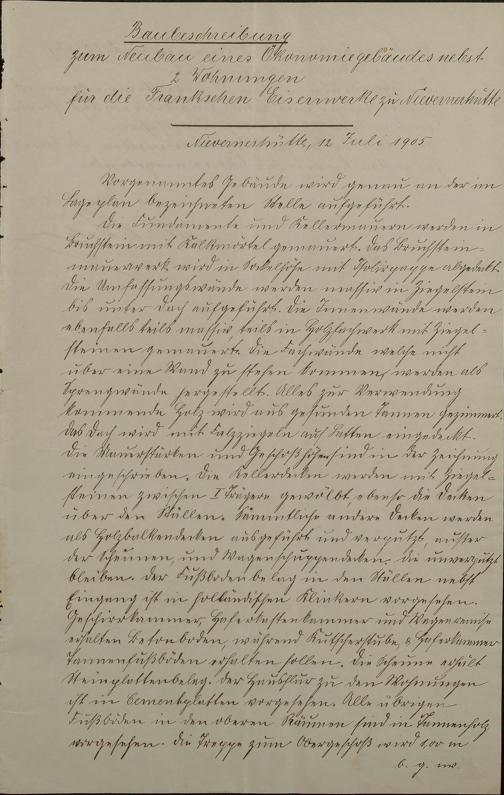 Baubeschreibung
zum Neubau eines Ökonomiegebäudes nebst
2 Wohnungen
für die Frankschen Eisenwerke zu Nievernerhütte
Nievernerhütte, 12 Juli 1905
Vorgenanntes Gebäude wird genau an der im
Lageplan bezeichneten Stelle aufgeführt.
Die Fundamente und Kellermauern werden in
Bruchstein mit Kalkmörtel gemauert. Das Bruchstein-
mauerwerk wird in Sockelhöhe mit Isolirpappe abgedeckt.
Die Umfassungswände werden massiv in Ziegelstein
bis unter Dach aufgeführt. Die Innenwände werden
ebenfalls teils massiv, teils in Holzfachwerk mit Ziegel-
steinen gemauert. Die Fachwände welche nicht
über eine Wand zu stehen kommen, werden als
Sprengwände hergestellt. Alles zur Verwendung
kommende Holz wird aus gesunden Tannen gezimmert.
Das Dach wird mit Falzziegeln auf Latten eingedeckt.
Die Mauerstärken und Geschoßhöhen sind in der Zeichnung
eingeschrieben. Die Kellerdecken werden mit Ziegel-
steinen zwischen I Trägern gewölbt, ebenso die Decken
über den Ställen. Sämmtliche andere Decken werden
als Holzbalkendecken ausgeführt und verputzt, außer
der Scheunen, und Wagenschuppendecken, die unverputzt
bleiben. Der Fußbodenbelag in den Ställen nebst
Eingang ist in holländischen Klinkern vorgesehen.
Geschirrkammer, Haferkastenkammer und Wagenremise
erhalten Betonboden, während Kutscherstube, & Haferkammer
Tannenfußböden erhalten sollen. Die Scheune erhält
Steinplattenbelag. Der Hausflur zu den Wohnungen
ist in Cementplatten vorgesehen. Alle übrigen
Fußböden in den oberen Räumen sind in Tannenholz
vorgesehen. Die Treppe zum Obergeschoß wird 1,00 m
b. g. nw.